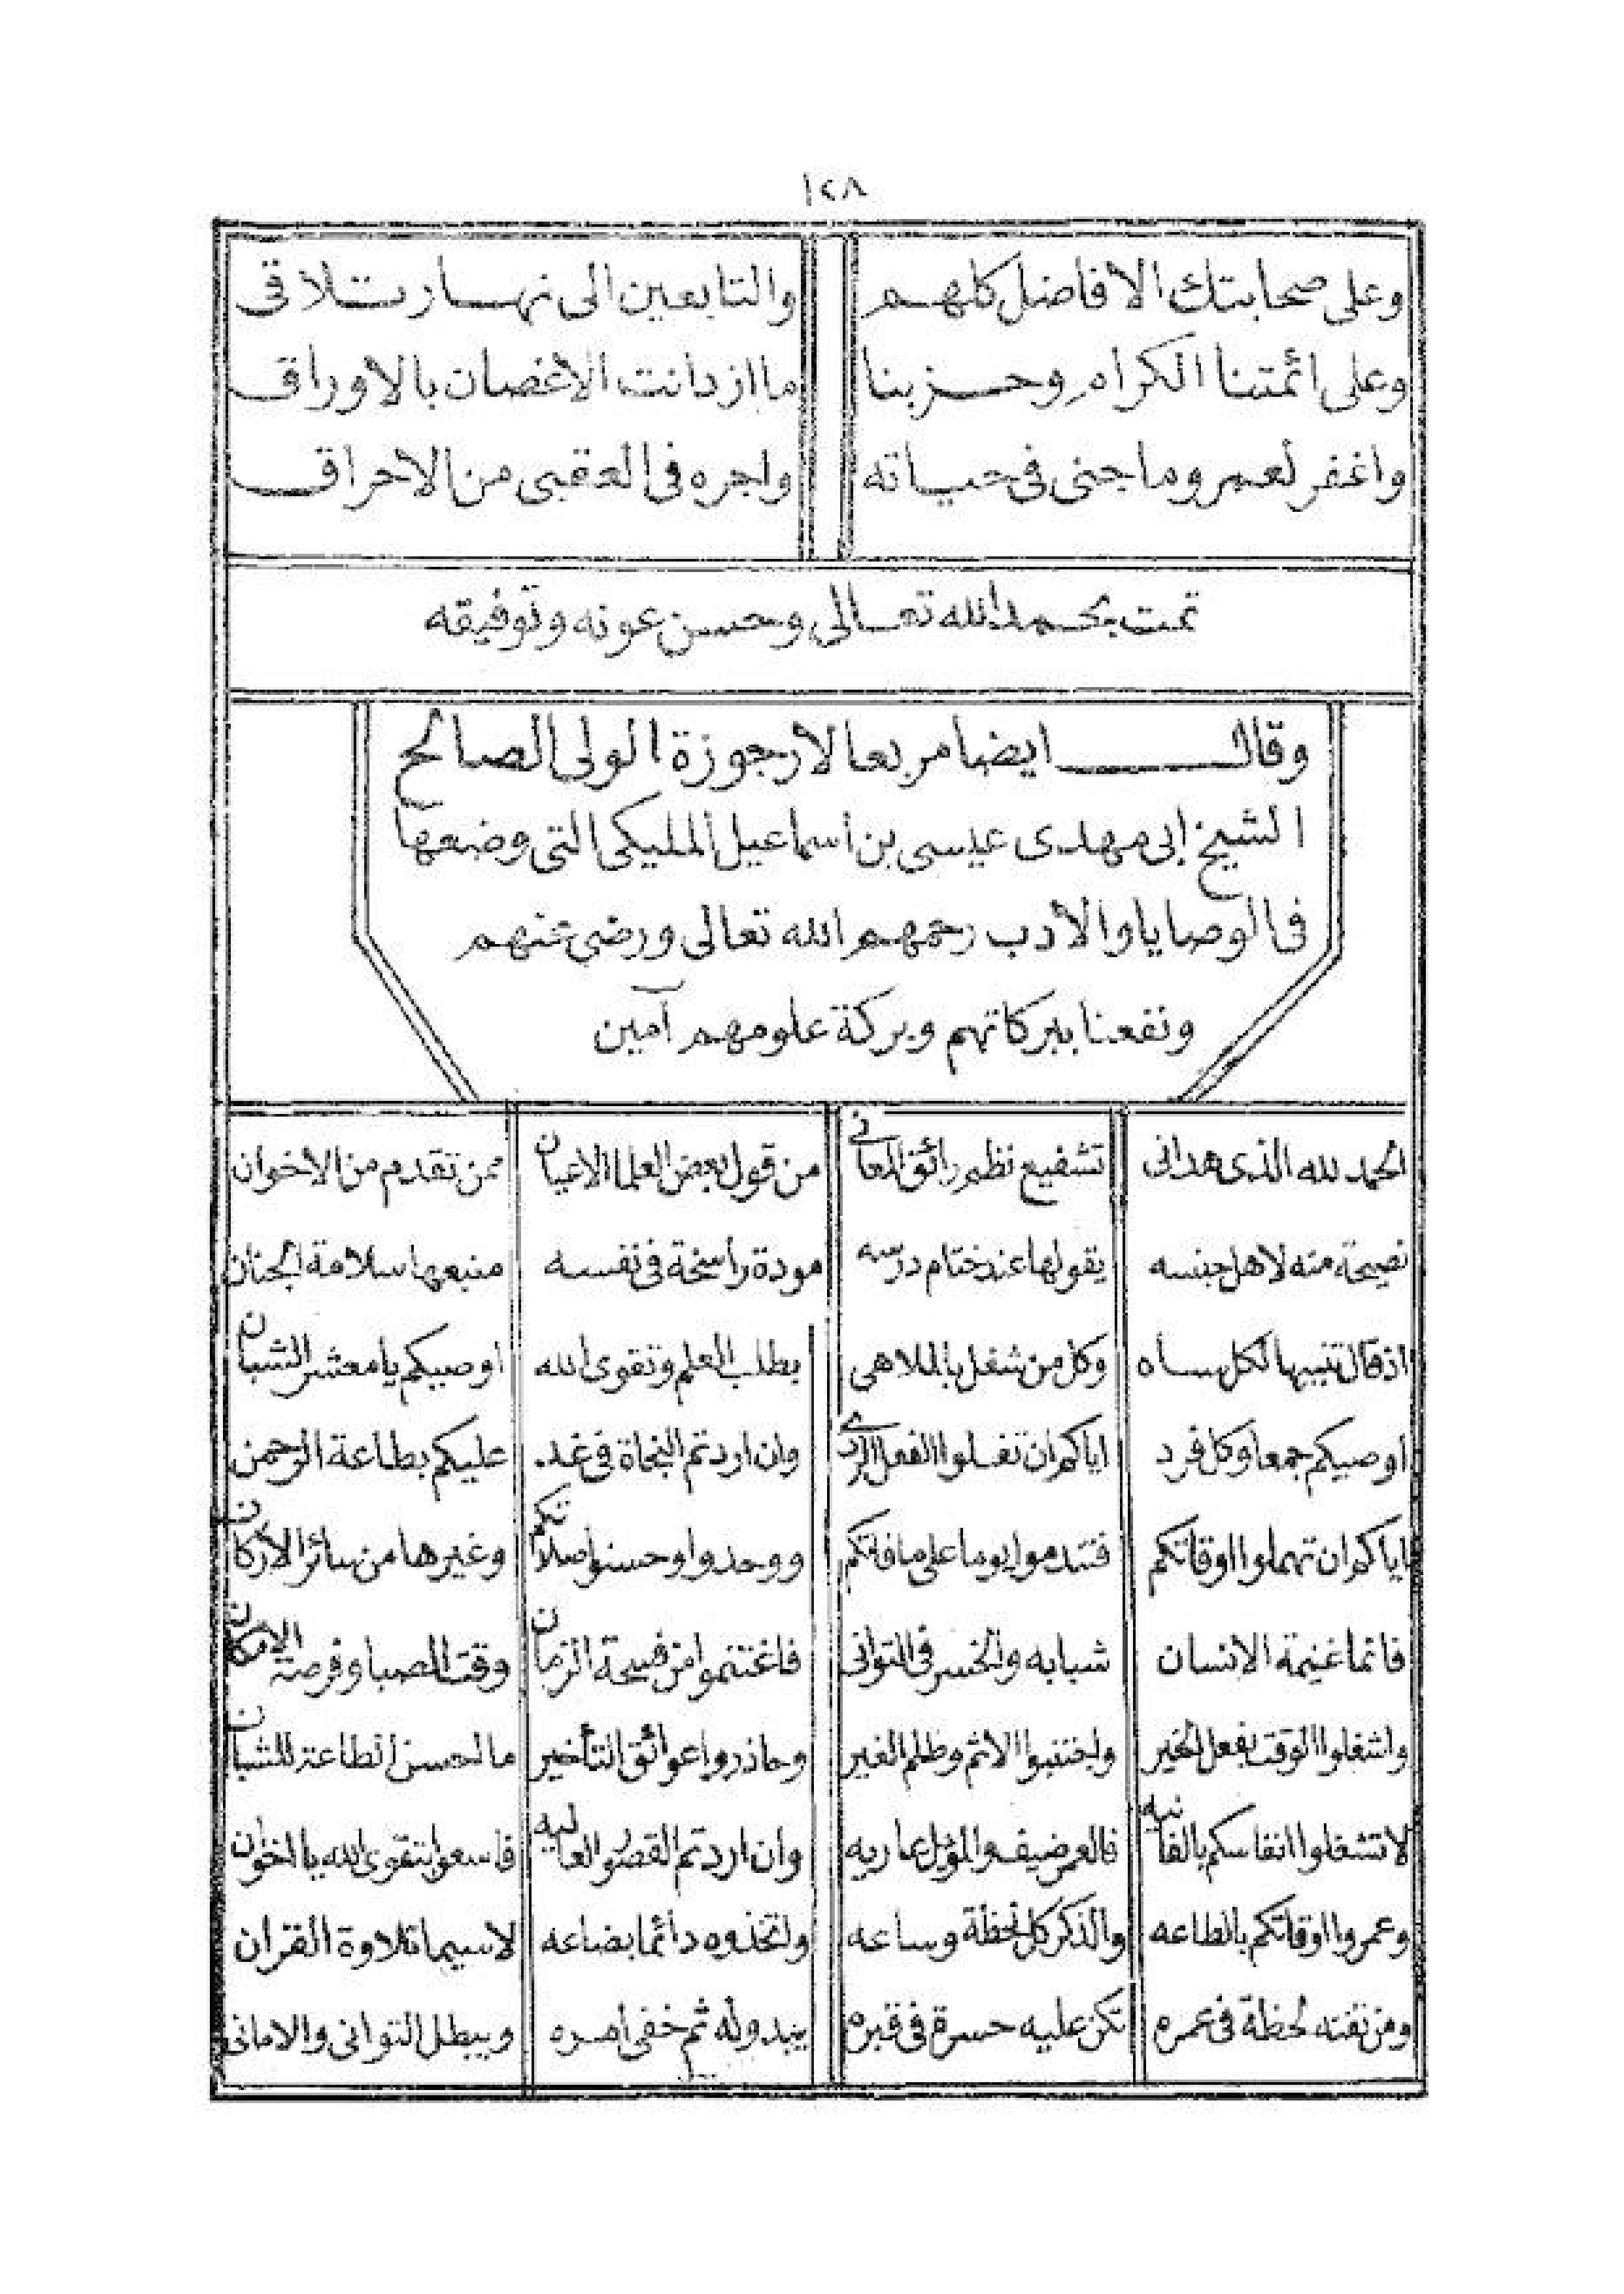 ١٢٨
وعلى صحابتك الافاضل كلهم والتابعين الى نهار تلاقى
وعلى ائمتنا الكرام وحزبنا ما ازدانت الاغصان بالاوراق
واغفر لعمر وما جنى فى حياته واجره فى العقبى من الاحراق
تمت بحمد الله تعالى وحسن عونه وتوفيقه
وقال ايضا مربعا لارجوزة الولى الصالح
الشيخ ابى مهدى عيسى بن اسماعيل المليكى التى وضعها
فى الوصايا والأدب رحمهم الله تعالى ورضى عنهم
ونفعنا ببركاتهم وبركة علومهم آمين
الحمد لله الذى هدانى تشفيع نظم رائق المعانى من قول بعض العلما الاعيان ممن تقدم من الاخوان
نصيحة منه لاهل جنسه يقولها عند ختام درسه مودة راسخة فى نفسه منبعها سلامة الجنان
اذ قال تنبيها لكل ساه وكل من شغل بالملاهى بطلب العلم وتقوى الله اوصيكم يا معشر الشبان
اوصيكم جمعا وكل فرد اياكم ان تفعلوا الفعل الردى وان اردتم النجاة فى غد عليكم بطاعة الرحمن
اياكم ان تهملوا اوقاتكم فتندموا يوما على ما فاتكم ووحدوا وحسنوا صلاتكم وغيرها من سائر الاركان
فانما غنيمة الانسان شبابه والخسر فى التوانى فاغتنموا من فسحة الزمان وقت الصبا وفرصة الامكان
واشغلوا الوقت بفعل الخير واجتنبوا الاثم وظلم الغير وحاذروا عوائق التأخير ما احسن الطاعة للشبان
لا تشغلوا انفاسكم بالفانيه فالعمر ضيف والمؤمل عاريه وان اردتم القصور العاليه فاسعوا بتقوى الله يا اخوان
وعمروا اوقاتكم بالطاعه والذكر كل لحظة وساعه واتخذوه دائما بضاعه لاسيما تلاوة القران
ومن تفته لحظة فى عمره تكن عليه حسرة فى قبره يبدو له ثم خفى امره ويبطل التوانى والامانى